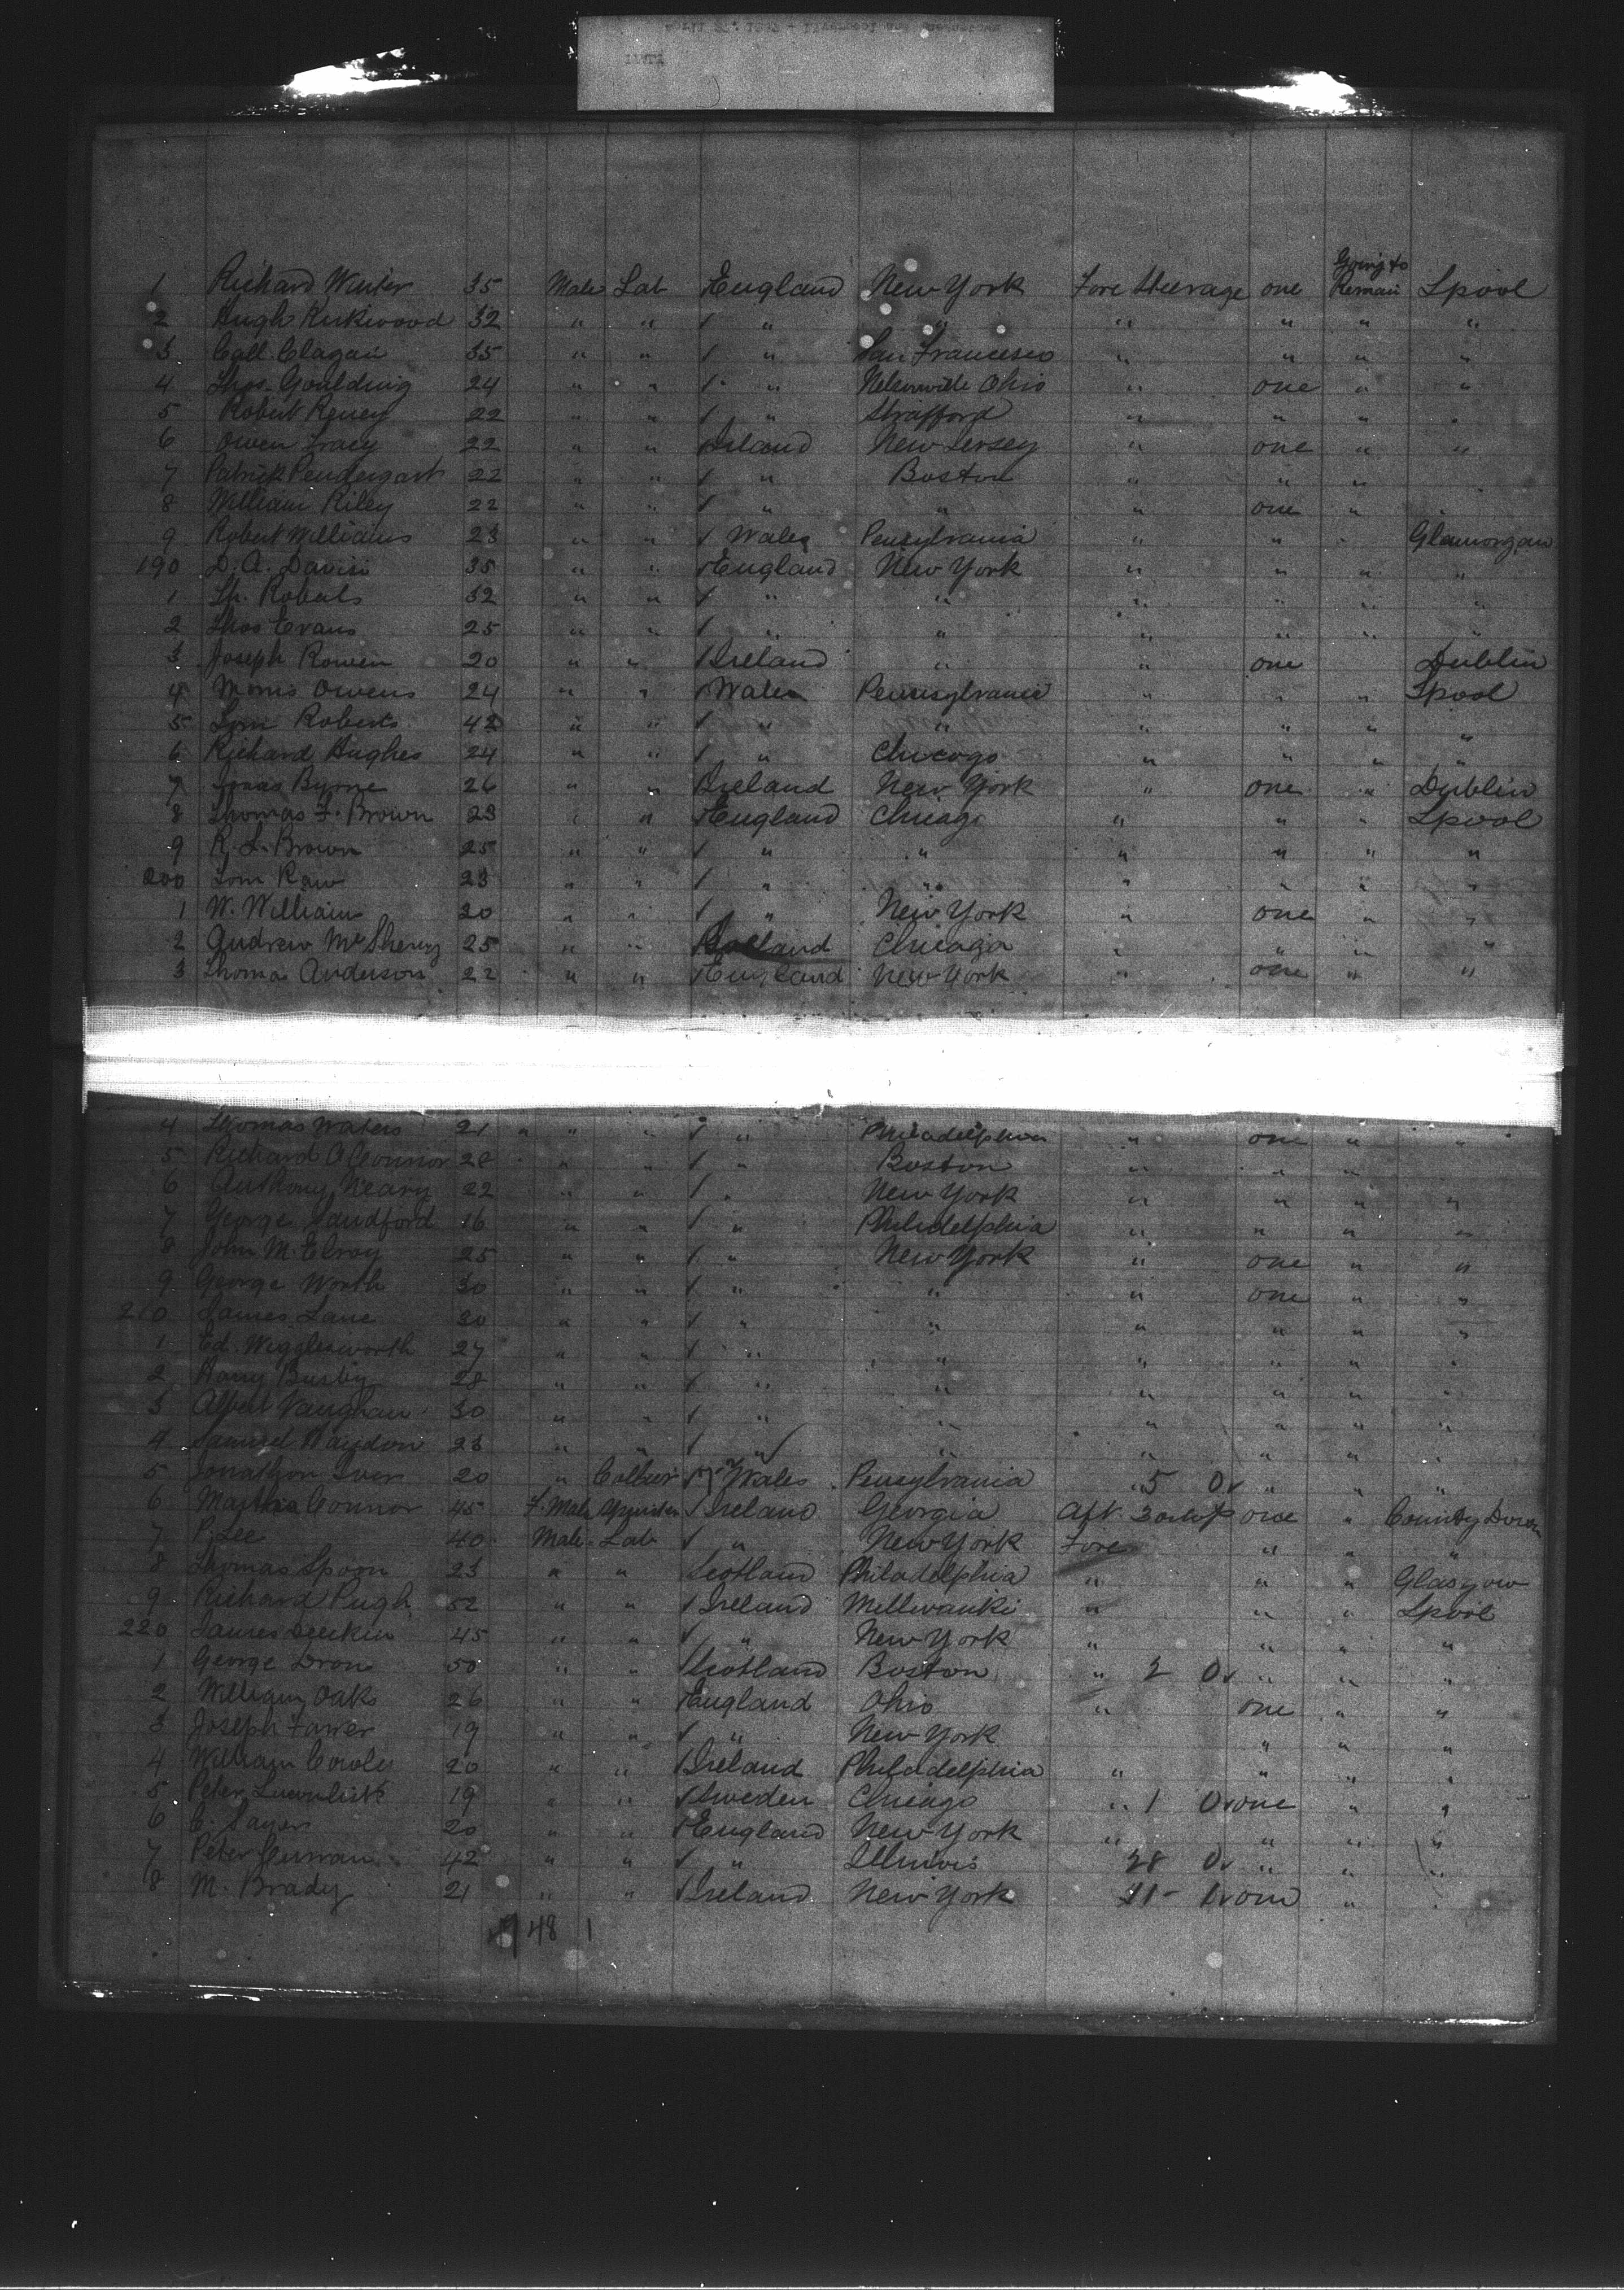 Going to
1 Richard Winter 35 Male Lab England New York Fore Steerage one Remain Lpool
2 Hugh Kirkwood 32 " " " " " " " "
3 35 " " " San Francesco " " " "
4 Thos. Goulding 24 " " " Ohio " one " "
5 Robert 22 " " " Strafford " " " "
6 Owen Tracy 22 " " Ireland New Jersey " one " "
7 Patrick Pendergast 22 " " " Boston " " "
8 William Riley 22 " " " " " one " "
9 Robert Williams 23 " " Wales Pensylvania " " " Glamorgan
190 D. A. 35 " " England New York " " " "
1 Th. Robats 32 " " " " " " " "
2 Thos Evans 25 " " " " " " " "
3 Joseph Rowen 20 " " Ireland " " one Dublin
4 Morris Owens 24 " " Wales Pennsylvania " " " Lpool
5 Tom Roberts 42 " " " " " " " "
6 Richard Hughes 24 " " " Chicago " " " "
7 Byrne 26 " " Ireland New York " one " Dublin
8 Thomas F. Brown 23 " " England Chicago " " " Lpool
9 R. L. Brown 25 " " " " " " " "
200 Tom Raw 23 " " " " " " " "
1 W. William 20 " " " New York " one " "
2 Andrew McSherry 25 " " Chicago " " " "
3 Thomas Anderson 22 " " England New York " one " "
4 Thomas Waters 21 " " " Philadelphia " one " "
5 Richard O Connor " " " Boston " " "
6 Anthony Neary 22 " " " New York " " " "
7 George Sandford 16 " " " Philidelphia " " " "
8 John M. Elroy 25 " " " New York " one " "
9 George Worth 30 " " " " " one " "
210 James Lane 30 " " " " " " " "
1 Ed. Wigglesworth 27 " " " " " " " "
2 Harry Busby 28 " " " " " " " "
3 Albert Vaughan 30 " " " " " " " "
4 Samuel Haydon 23 " " " " " " " "
5 Jonathon 20 " Collier Wales Pensylvania " 5 Ov " " "
6 Martha Connor 45 F. Male Spinster Ireland Georgia Aft. one " County Down
7 P. Lee 40 Male Lab " New York Fore " " "
8 Thomas Spoon 23 " " Scotland Philadelphia " " " Glasgow
9 Richard Pugh 52 " " Ireland Millwauki " " " Lpool
220 James 45 " " " New York " " " "
1 George Dron 50 " " Scotland Boston " 2 Ov " " "
2 William Oaks 26 " " England Ohio " one " "
3 Joseph 19 " " " New York " " "
4 William Cowley 20 " " Ireland Philidelphia " " " "
5 Peter 19 " " Sweden Chicago " 1 Ov one " "
6 C. Sayers 20 " " England New York " " " "
7 Peter 42 " " " Illinois 28 Ov " " "
8 M. Brady 21 " " Ireland New York " "
48 1